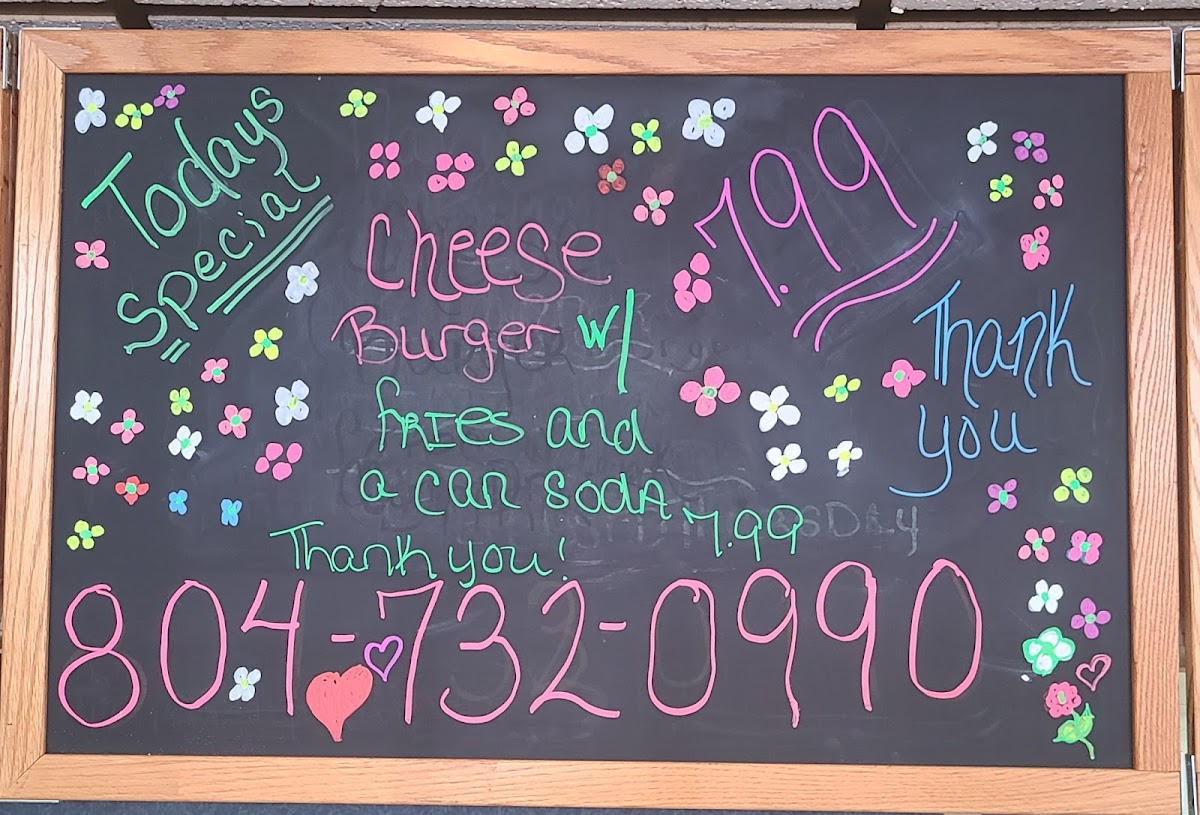 Todays
Special
7.99
Cheese
Burger w/
fries and
a can soda 7.99
Thank you!
Thank
you
804-732-0990